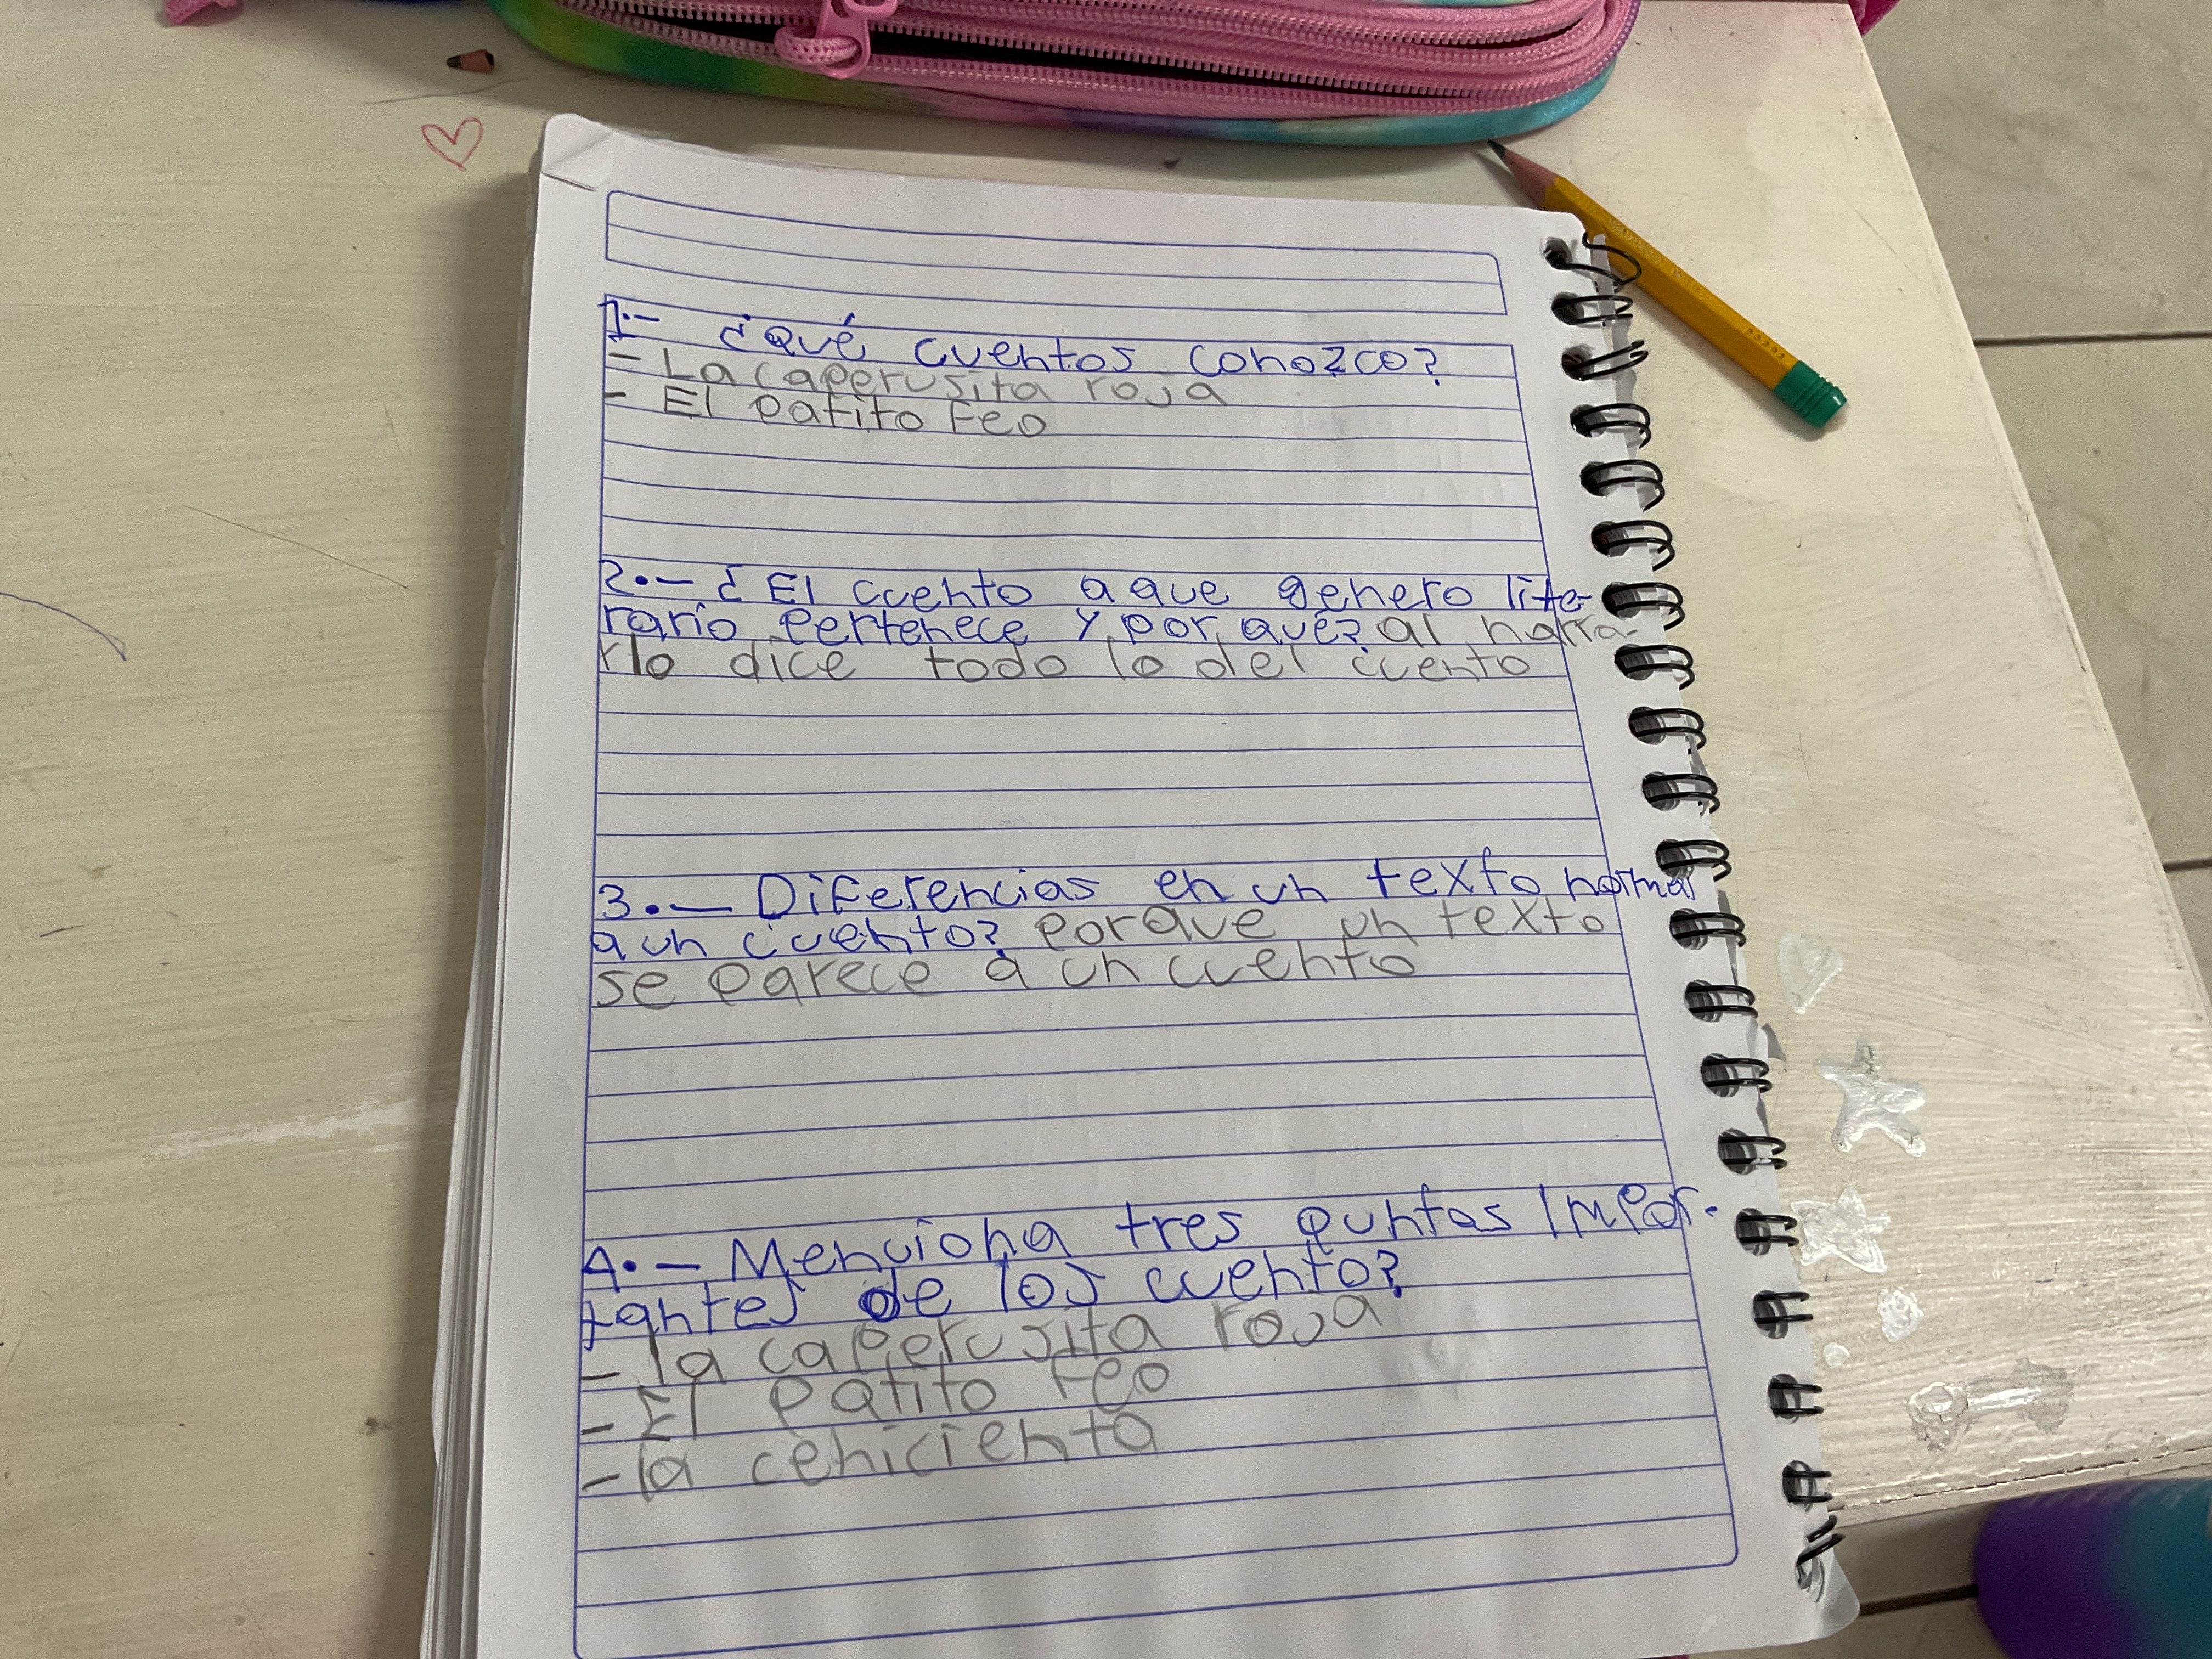 1.- ¿Qué cuentos conozco?
- La caperusita roja
- El patito feo
2.- ¿El cuento a que genero lite-
rario pertenece y por qué? al narra-
rlo dice todo lo del cuento
3.- Diferencias en un texto normal
a un cuento? Porque un texto
se parece a un cuento
4.- Menciona tres puntos Impor-
tantes de los cuento?
- la caperusita roja
- El patito feo
- la cenicienta